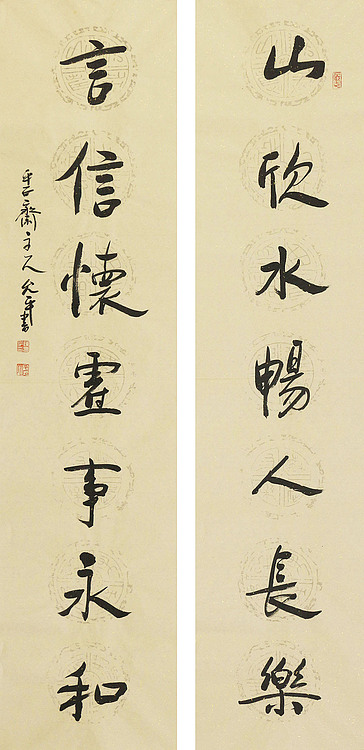 山欣水暢人長樂
言信懷虛事永和
齋主人允平書